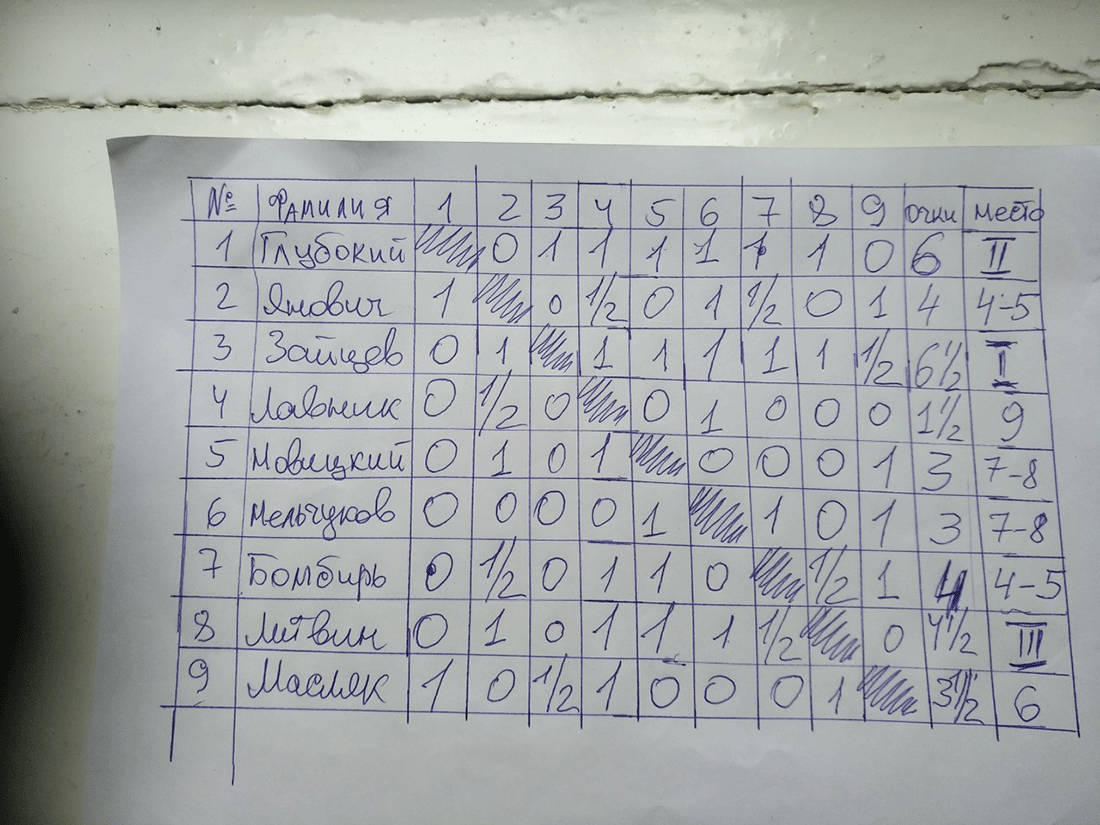 № Фамилия 1 2 3 4 5 6 7 8 9 очки место
1 Глубокий 0 1 1 1 1 1 1 0 6 II
2 Янович 1 0 1/2 0 1 1/2 0 1 4 4-5
3 Зайцев 0 1 1 1 1 1 1 1/2 6 1/2 I
4 Лавник 0 1/2 0 0 1 0 0 0 1 1/2 9
5 Новицкий 0 1 0 1 0 0 0 1 3 7-8
6 Мельчуков 0 0 0 0 1 1 0 1 3 7-8
7 Бомбирь 0 1/2 0 1 1 0 1/2 1 4 4-5
8 Литвин 0 1 0 1 1 1 1/2 0 4 1/2 III
9 Масляк 1 0 1/2 1 0 0 0 1 3 1/2 6